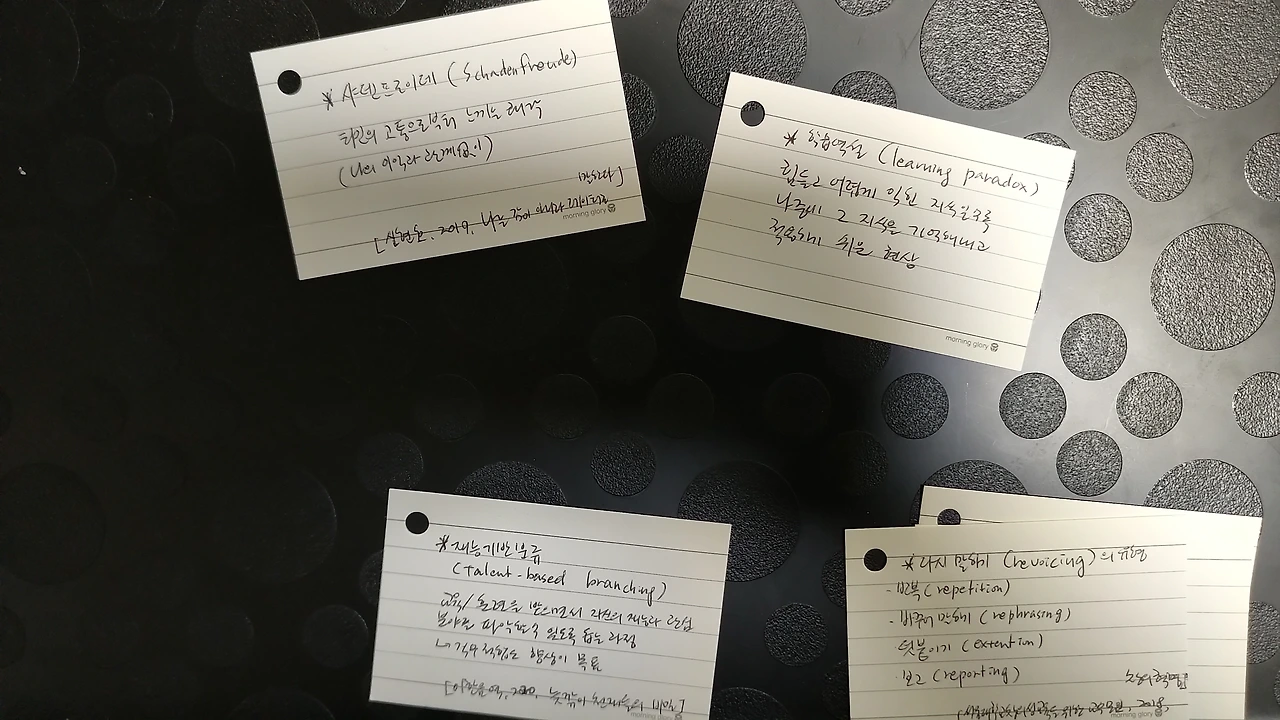 * 샤덴프로이데 (Schadenfreude)
타인의 고통으로부터 느끼는 쾌락
(나의 이익과 관계없이)
morning glory
* 학습역설 (learning paradox)
힘들고 어렵게 익힌 지식일수록
나중에 그 지식을 기억해내고
적용하기 쉬운 현상
morning glory
* 재능기반분류
(talent-based branching)
교육/훈련을 받으면서 자신의 재능과 관심
분야를 파악할 수 있도록 돕는 과정
↳ 직무적합도 향상이 목표
morning glory
* 다시 말하기 (revoicing)의 유형
- 반복 (repetition)
- 바꾸어 말하기 (rephrasing)
- 덧붙이기 (extention)
- 보고 (reporting)